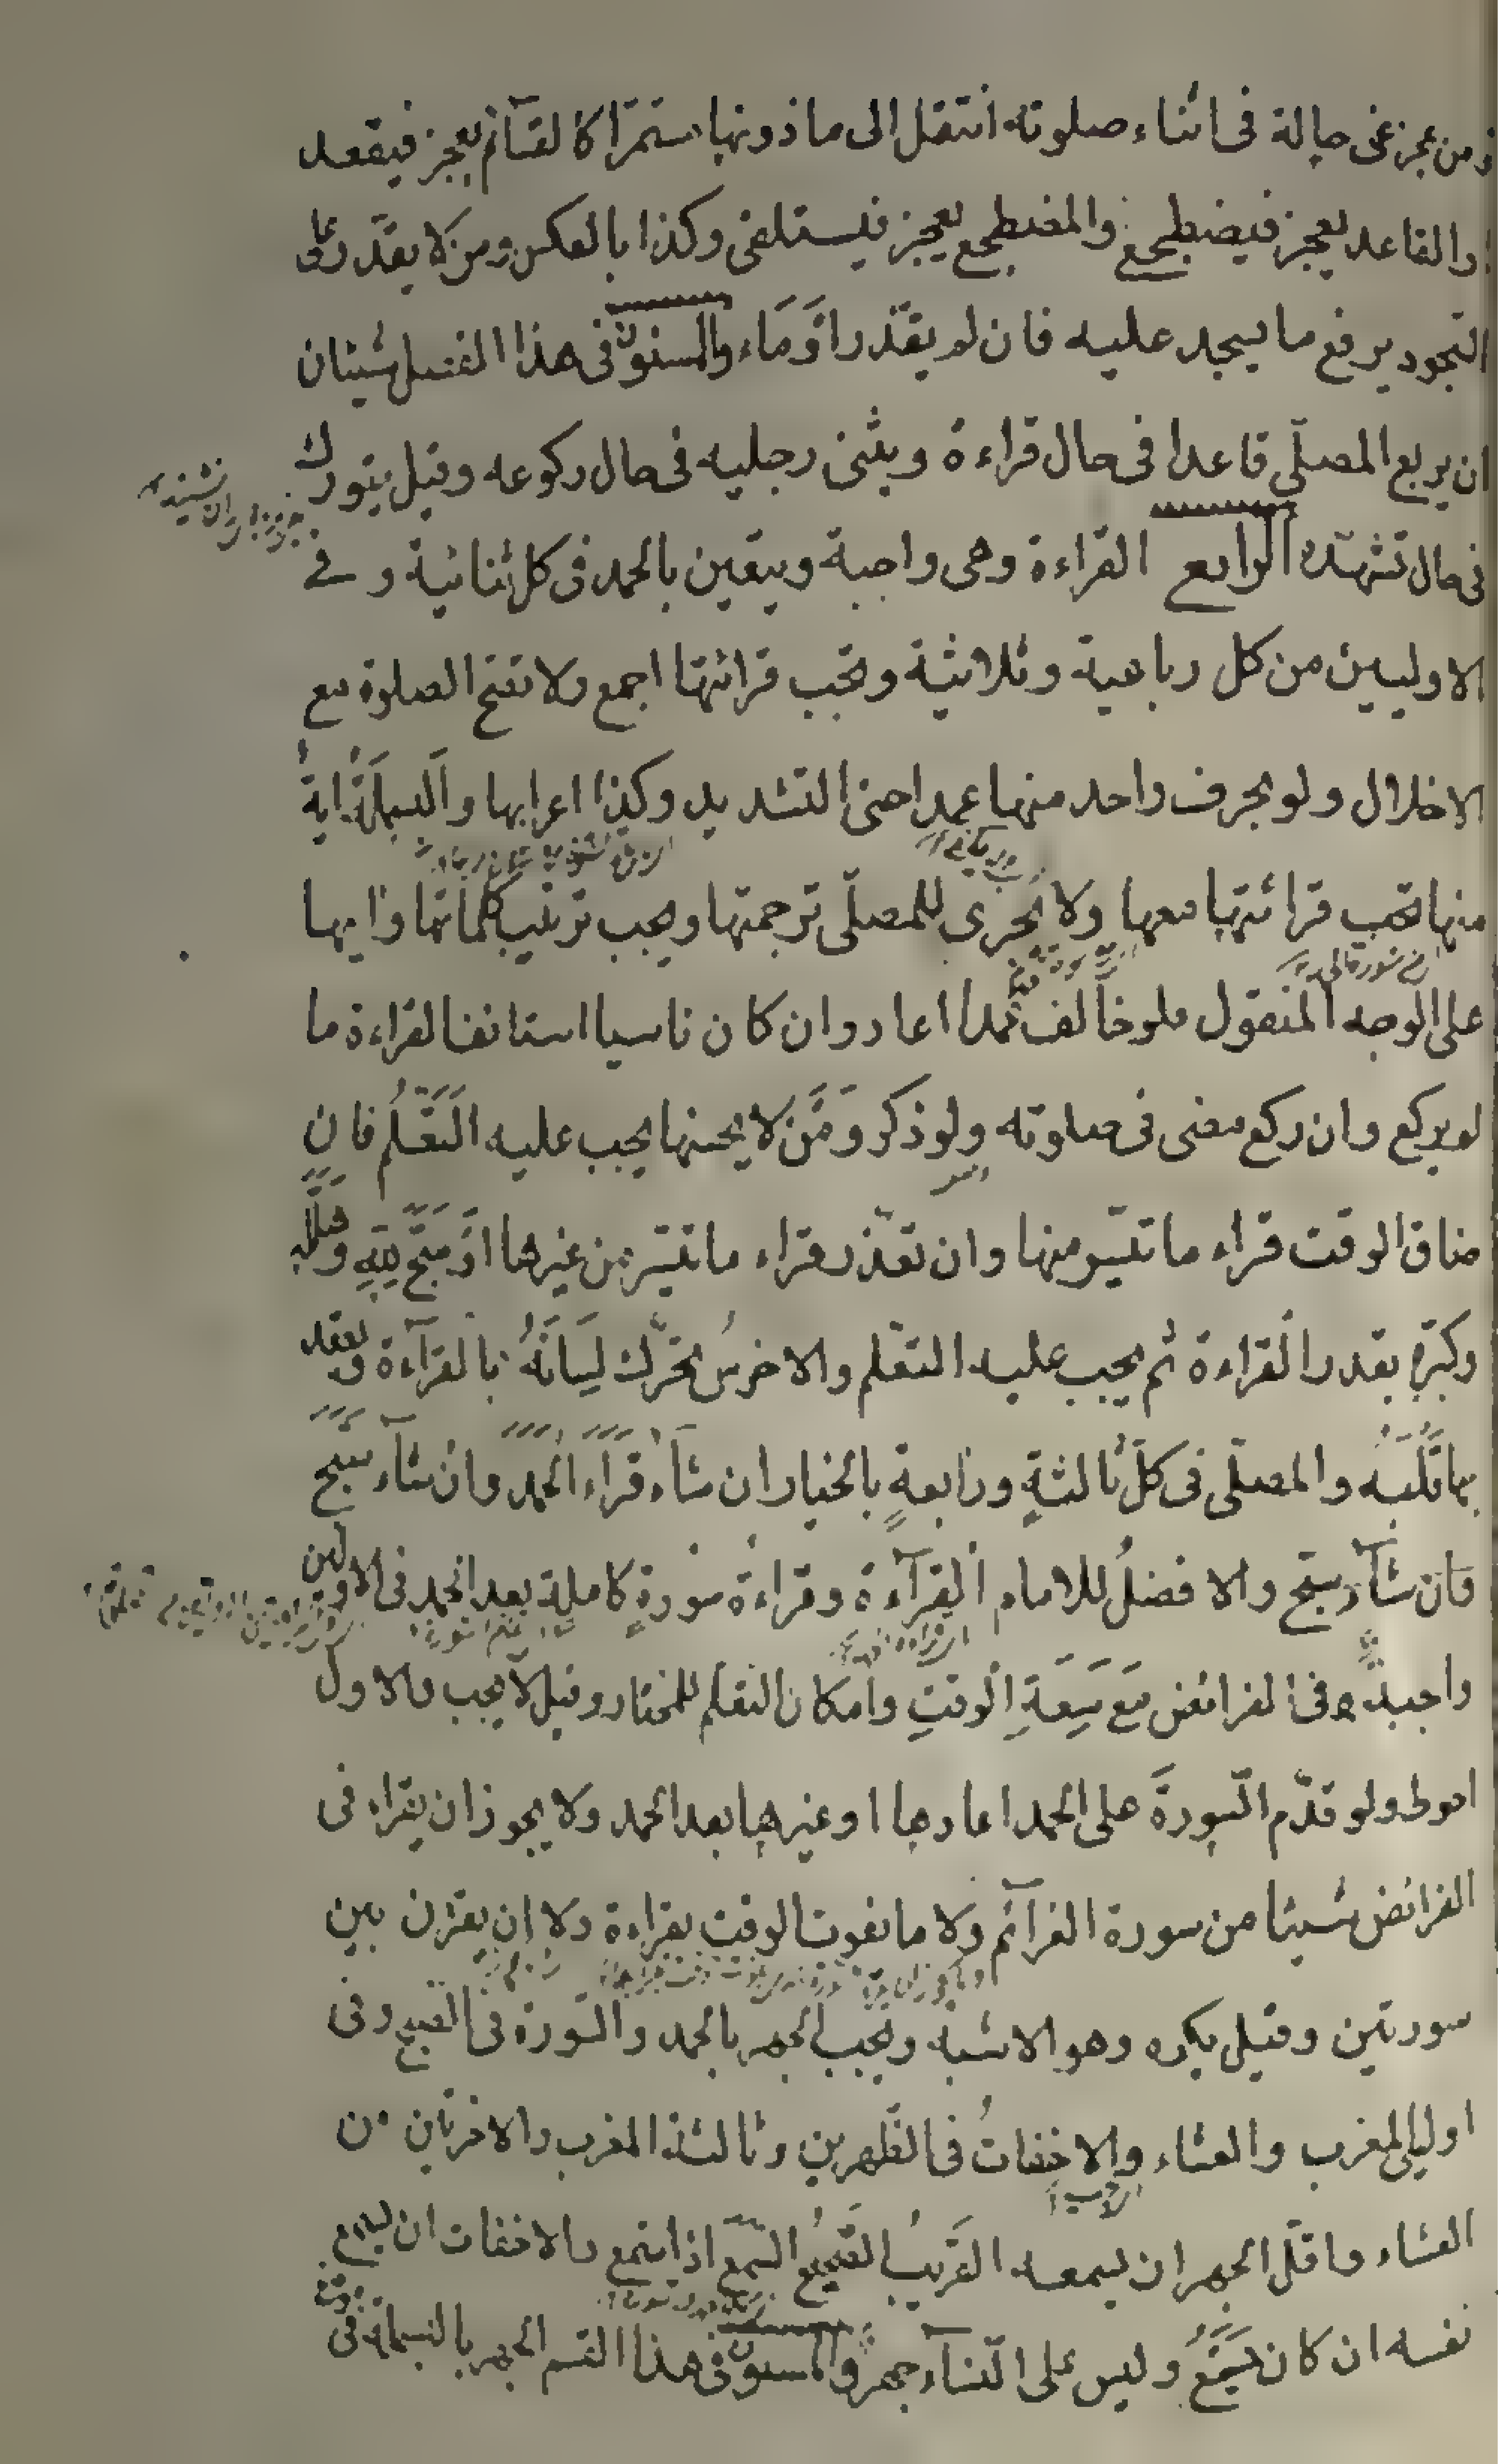 ومن عجز عن حالة فى اثناء صلوته انتقل الى ما دونها مستمرا كالقآئم يعجز فيقعد
والقاعد يعجز فيضطجع والمضطجع يعجز فيستلقى وكذا بالعكس ومن لا يقدر على
السجود يرفع ما يسجد عليه فان لم يقدر اومَاء والمسنون فى هذا الفصل شيئان
ان يربع المصلّى قاعدا فى حال قراءة ويثنى رجليه فى حال ركوعه وقيل يتورك
فى حال تشهّده الرابع القراءة وهى واجبة ويتعين بالحمد فى كل ثنائية و فے
الاوليين من كل رباعية وثلاثية وتجب قرائتها اجمع ولا تصح الصلوة مع
الاخلال ولو بحرف واحد منها عمدا حتى التشديد وكذا اعرابها والبسملة اية
منها تجب قرائتها معها ولا يجزى للمصلّى ترجمتها ويجب ترتيب كلماتها وايها
على الوجه المنقول فلو خالف عمدا اعاد وان كان ناسيا استانف القراءة ما
لم يركع وان ركع مضى فى صلوته ولو ذكر ومَن لا يحسنها يجب عليه التعَلّم فان
ضاق الوقت قراء ما تيسّر منها وان تعذّر قراء ما تيسر من غيرها او سبّح للّه وهلّله
وكبّره بقدر القراءة ثم يجب عليه التعلّم والاخرسُ يحرّك لِسَانَهُ بالقرآءة ويعقد
بها قلبَه والمصلّى فى كلّ ثالثةٍ ورابعةٍ بالخيار ان شآء قرَاءَ الحمدَ وان شآء سبّح
وان شآء سبّح والافضلُ للامام القرآءة وقراءة سورةٍ كاملة بعد الحمد فى الاوليين
واجبة فى الفرائض مَع سَعَةِ الوقتِ وامكان التعلّم للمختار وقيل لا يجب والاول
احوط ولو قدّم السّورةَ على الحمد اعادها او غيرها بعد الحمد ولا يجوز ان يقراء فى
الفرائض شيئا من سورة العزآئم ولا ما يفوت الوقت بقراءة ولا ان يقرن بين
سورتين وقيل يكره وهو الاشبه ويجب الجهر بالحمد والسّورة فى الصّبح وفى
اوليى المغرب والعشاء والاخفاتُ فى الظّهرين وثالثة المغرب والاخرتين من
العشاء واقلّ الجهر ان يسمعه القريبُ الصّحيحُ السّمع اذا استمع والاخفات ان يسمع
نفسه ان كان يَسمَعُ وليس على النّسآء جهر والمسنون فى هذا القسم الجهر بالبسملة فى